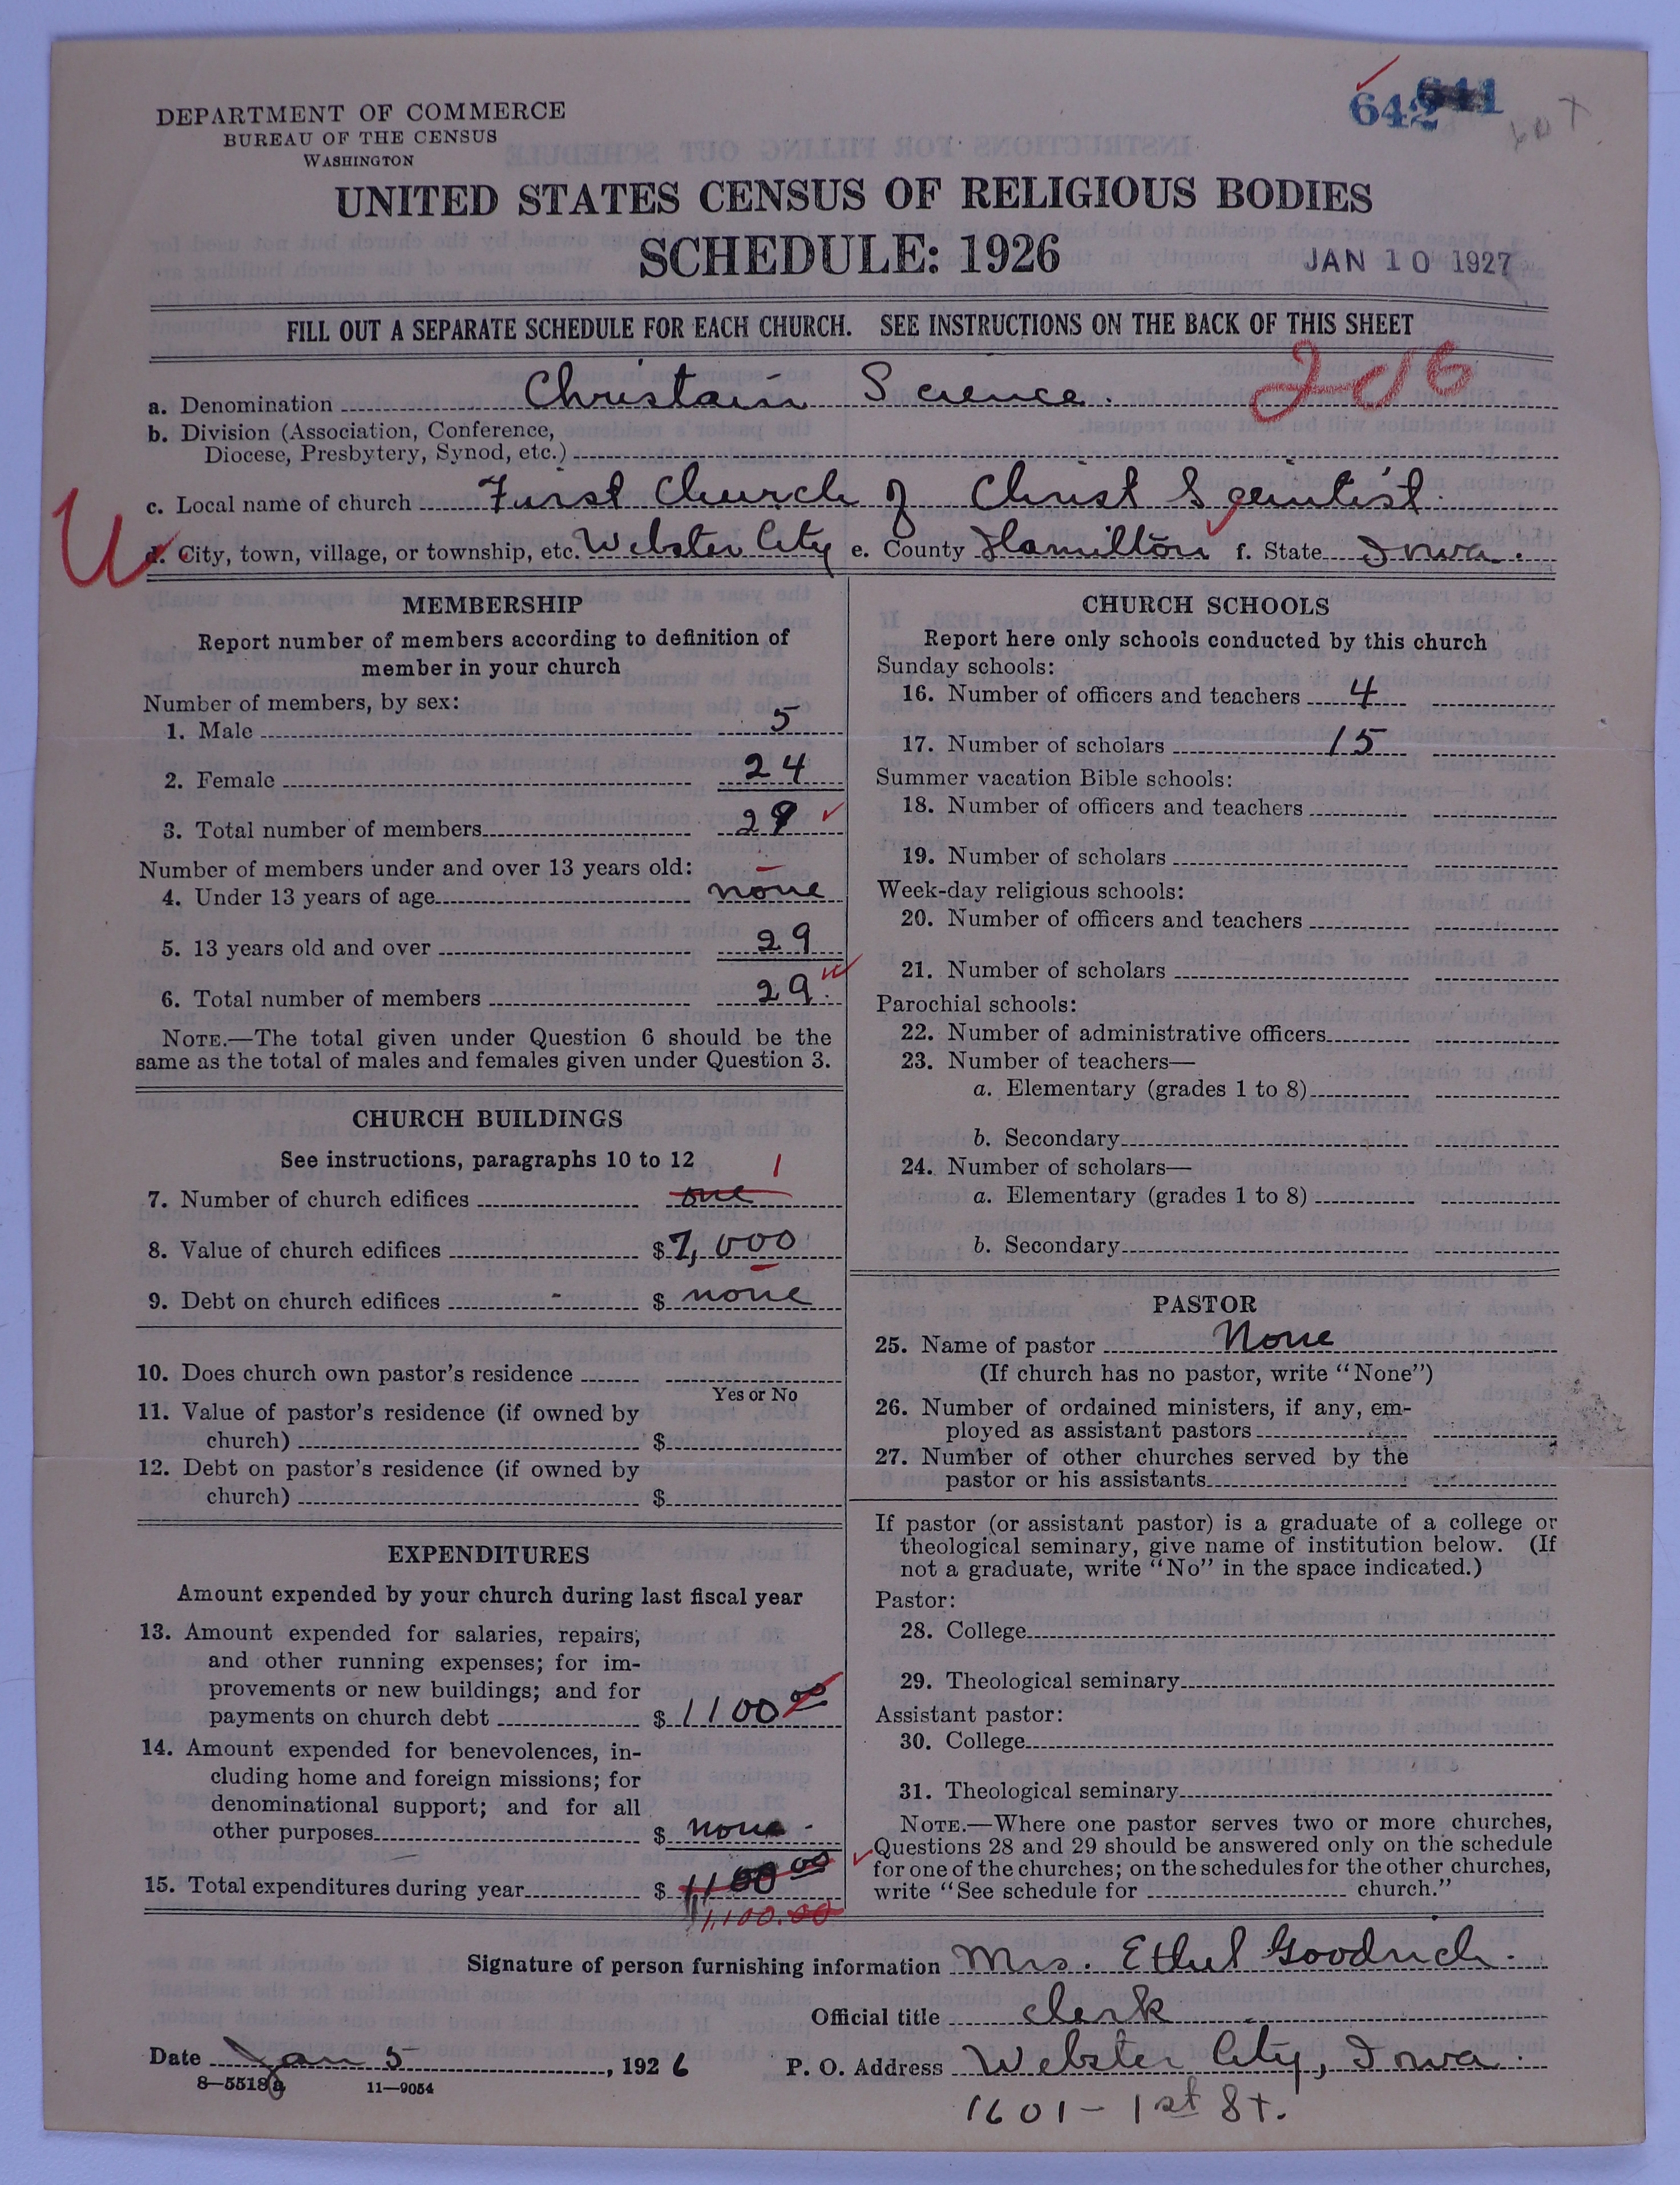 642 641
DEPARTMENT OF COMMERCE
BUREAU OF THE CENSUS
WASHINGTON
UNITED STATES CENSUS OF RELIGIOUS BODIES
SCHEDULE: 1926
JAN 10 1927
FILL OUT A SEPARATE SCHEDULE FOR EACH CHURCH. SEE INSTRUCTIONS ON THE BACK OF THIS SHEET
a. Denomination Christain Science.
b. Division (Association, Conference,
Diocese, Presbytery, Synod, etc.)
c. Local name of church First Church of Christ Scientist.
d. City, town, village, or township, etc. Webster City e. County Hamilton f. State Iowa.
MEMBERSHIP
Report number of members according to definition of
member in your church
Number of members, by sex:
1. Male 5
2. Female 24
3. Total number of members 29
Number of members under and over 13 years old:
4. Under 13 years of age none
5. 13 years old and over 29
6. Total number of members 29.
NOTE.—The total given under Question 6 should be the
same as the total of males and females given under Question 3.
CHURCH BUILDINGS
See instructions, paragraphs 10 to 12
1
7. Number of church edifices one
8. Value of church edifices $ 7,000
9. Debt on church edifices $ none
10. Does church own pastor's residence
Yes or No
11. Value of pastor's residence (if owned by
church) $
12. Debt on pastor's residence (if owned by
church) $
EXPENDITURES
Amount expended by your church during last fiscal year
13. Amount expended for salaries, repairs,
and other running expenses; for im-
provements or new buildings; and for
payments on church debt $ 1100 00
14. Amount expended for benevolences, in-
cluding home and foreign missions; for
denominational support; and for all
other purposes $ none
15. Total expenditures during year $ 1100 00
1,100.00
CHURCH SCHOOLS
Report here only schools conducted by this church
Sunday schools:
16. Number of officers and teachers 4
17. Number of scholars 15
Summer vacation Bible schools:
18. Number of officers and teachers
19. Number of scholars
Week-day religious schools:
20. Number of officers and teachers
21. Number of scholars
Parochial schools:
22. Number of administrative officers
23. Number of teachers—
a. Elementary (grades 1 to 8)
b. Secondary
24. Number of scholars—
a. Elementary (grades 1 to 8)
b. Secondary
PASTOR
25. Name of pastor None
(If church has no pastor, write "None")
26. Number of ordained ministers, if any, em-
ployed as assistant pastors
27. Number of other churches served by the
pastor or his assistants
If pastor (or assistant pastor) is a graduate of a college or
theological seminary, give name of institution below. (If
not a graduate, write "No" in the space indicated.)
Pastor:
28. College
29. Theological seminary
Assistant pastor:
30. College
31. Theological seminary
NOTE.—Where one pastor serves two or more churches,
Questions 28 and 29 should be answered only on the schedule
for one of the churches; on the schedules for the other churches,
write "See schedule for church."
Signature of person furnishing information Mrs. Ethel Goodrich.
Official title clerk
Date Jan 5, 1926 P. O. Address Webster City, Iowa.
8—5518a 11—9054
1601 - 1st St.